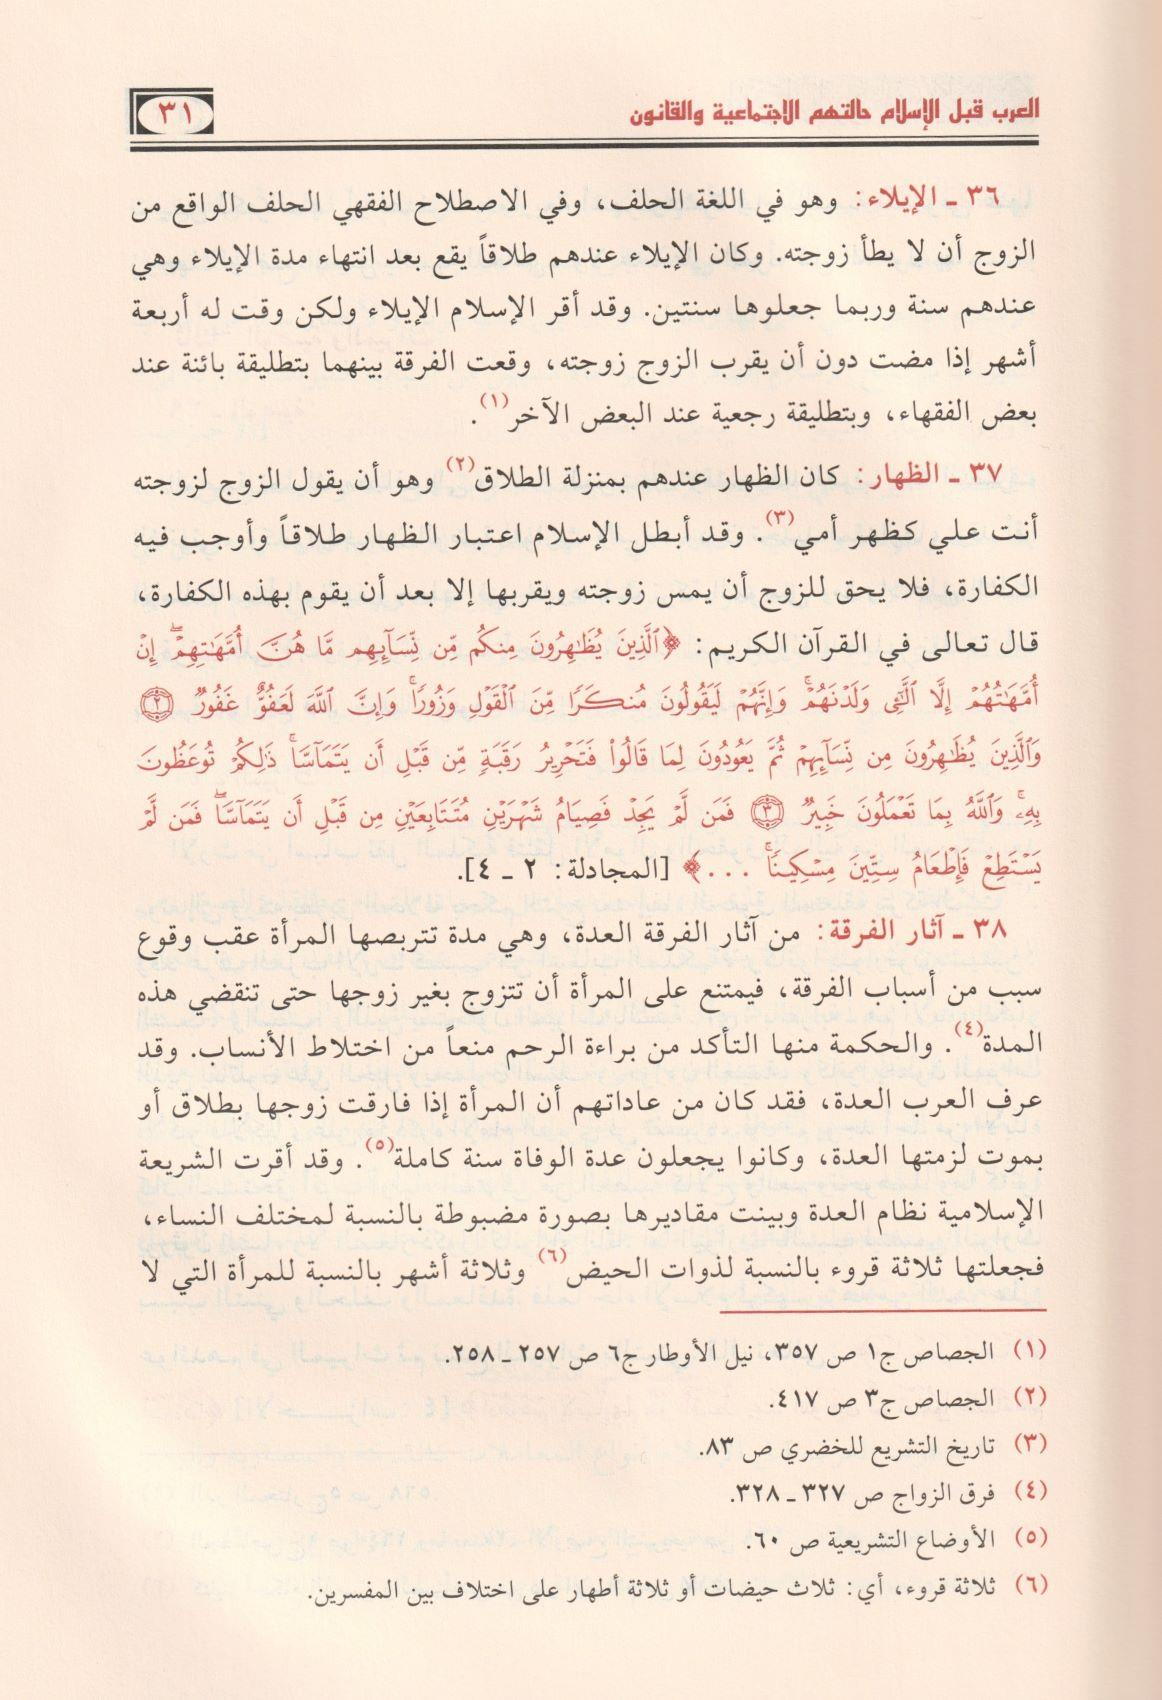 العرب قبل الإسلام حالتهم الاجتماعية والقانون
٣١
٣٦ ـ الإيلاء: وهو في اللغة الحلف، وفي الاصطلاح الفقهي الحلف الواقع من
الزوج أن لا يطأ زوجته. وكان الإيلاء عندهم طلاقاً يقع بعد انتهاء مدة الإيلاء وهي
عندهم سنة وربما جعلوها سنتين. وقد أقر الإسلام الإيلاء ولكن وقت له أربعة
أشهر إذا مضت دون أن يقرب الزوج زوجته، وقعت الفرقة بينهما بتطليقة بائنة عند
بعض الفقهاء، وبتطليقة رجعية عند البعض الآخر(١).
٣٧ ـ الظهار: كان الظهار عندهم بمنزلة الطلاق(٢) وهو أن يقول الزوج لزوجته
أنت علي كظهر أمي(٣). وقد أبطل الإسلام اعتبار الظهار طلاقاً وأوجب فيه
الكفارة، فلا يحق للزوج أن يمس زوجته ويقربها إلا بعد أن يقوم بهذه الكفارة،
قال تعالى في القرآن الكريم: ﴿ٱلَّذِينَ يُظَٰهِرُونَ مِنكُم مِّن نِّسَآئِهِم مَّا هُنَّ أُمَّهَٰتِهِمْۖ إِنْ
أُمَّهَٰتُهُمْ إِلَّا ٱلَّٰٓـِٔى وَلَدْنَهُمْۚ وَإِنَّهُمْ لَيَقُولُونَ مُنكَرًا مِّنَ ٱلْقَوْلِ وَزُورًاۚ وَإِنَّ ٱللَّهَ لَعَفُوٌّ غَفُورٌ ۝٢
وَٱلَّذِينَ يُظَٰهِرُونَ مِن نِّسَآئِهِمْ ثُمَّ يَعُودُونَ لِمَا قَالُوا۟ فَتَحْرِيرُ رَقَبَةٍ مِّن قَبْلِ أَن يَتَمَآسَّاۚ ذَٰلِكُمْ تُوعَظُونَ
بِهِۦۚ وَٱللَّهُ بِمَا تَعْمَلُونَ خَبِيرٌ ۝٣ فَمَن لَّمْ يَجِدْ فَصِيَامُ شَهْرَيْنِ مُتَتَابِعَيْنِ مِن قَبْلِ أَن يَتَمَآسَّاۖ فَمَن لَّمْ
يَسْتَطِعْ فَإِطْعَامُ سِتِّينَ مِسْكِينًاۚ ...﴾ [المجادلة: ٢ ـ ٤].
٣٨ ـ آثار الفرقة: من آثار الفرقة العدة، وهي مدة تتربصها المرأة عقب وقوع
سبب من أسباب الفرقة، فيمتنع على المرأة أن تتزوج بغير زوجها حتى تنقضي هذه
المدة(٤). والحكمة منها التأكد من براءة الرحم منعاً من اختلاط الأنساب. وقد
عرف العرب العدة، فقد كان من عاداتهم أن المرأة إذا فارقت زوجها بطلاق أو
بموت لزمتها العدة، وكانوا يجعلون عدة الوفاة سنة كاملة(٥). وقد أقرت الشريعة
الإسلامية نظام العدة وبينت مقاديرها بصورة مضبوطة بالنسبة لمختلف النساء،
فجعلتها ثلاثة قروء بالنسبة لذوات الحيض(٦) وثلاثة أشهر بالنسبة للمرأة التي لا
(١) الجصاص ج١ ص ٣٥٧، نيل الأوطار ج٦ ص ٢٥٧ ـ ٢٥٨.
(٢) الجصاص ج٣ ص ٤١٧.
(٣) تاريخ التشريع للخضري ص ٨٣.
(٤) فرق الزواج ص ٣٢٧ ـ ٣٢٨.
(٥) الأوضاع التشريعية ص ٦٠.
(٦) ثلاثة قروء، أي: ثلاث حيضات أو ثلاثة أطهار على اختلاف بين المفسرين.